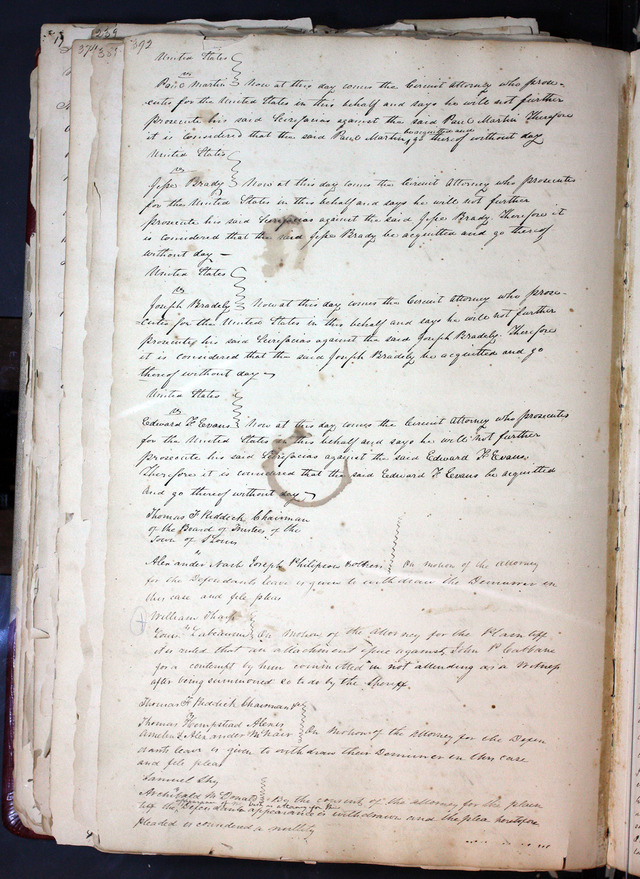 392
United States
vs
Paul Martin Now at this day comes the Circuit Attorney who prose-
cutes for the United States in this behalf and says he will not further
prosecute his said Scirefacias against the said Paul Martin Therefore
it is considered that the said Paul Martin be acquitted and go thereof without day
United States
vs
Jesse Brady Now at this day comes the Circuit Attorney who prosecutes
for the United States in this behalf and says he will not further
prosecute his said Scirefacias against the said Jesse Brady Therefore it
is considered that the said Jesse Brady be acquitted and go thereof
without day —
United States
vs
Joseph Bradely Now at this day comes the Circuit Attorney who prose-
cutes for the United States in this behalf and says he will not further
prosecute his said Scirefacias against the said Joseph Bradely. Therefore
it is considered that the said Joseph Bradely be acquitted and go
thereof without day —
United States
vs
Edward F Evans Now at this day comes the Circuit Attorney who prosecutes
for the United States in this behalf and says he will not further
prosecute his said Scirefacias against the said Edward F Evans.
Therefore it is considered that the said Edward F Evans be acquitted
and go thereof without day —
Thomas F Riddick Chairman
of the Board of Trustees of the
Town of St Louis
vs
Alexander Nash Joseph Philipson On motion of the attorney
for the Defendants leave is given to withdraw the Demurrer in
this case and file pleas
William Tharp
vs
Louis On motion of the attorney for the Plaintiff
it is ruled that an attachment issue against John P
for a contempt by him committed in not attending as a Witness
after being summoned so to do by the Sheriff.
Thomas F Riddick Chairman &c
vs
Thomas Hempstead Alexis
Amelin & Alexander McNair On motion of the attorney for the Defen
dants leave is given to withdraw their Demurrer in this case
and file pleas
Samuel Shy
vs
Archibald McDonald By the consent of the attorney for the plain
tiff the Defendants appearance is withdrawn and the plea heretofore
pleaded is considered a nullity